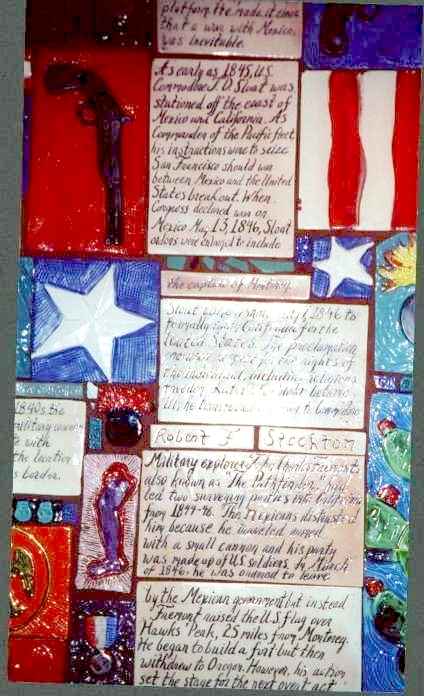 platform he made it clear
that a war with Mexico
was inevitable.
As early as 1845, U.S.
Commodore J. D. Sloat was
stationed off the coast of
Mexico and California. As
Commander of the Pacific fleet
his instructions were to seize
San Francisco should war
between Mexico and the United
States break out. When
Congress declared war on
Mexico May 13, 1846, Sloat
orders were enlarged to include
the capture of Monterey.
Sloat 1846 to
California for the
United States. The proclamation
for the rights of
the individual, including religious
freedom.
to Commodore
Robert F. Stockton
1840s the
military
with
the location
border.
Military explorer John Charles Fremont
also known as "The Pathfinder" had
led two surveying parties into California
from 1844-46. The Mexicans distrusted
him because he traveled armed
with a small canyon and his party
was made up of US soldiers. In March
of 1846, he was ordered to leave
by the Mexican government but instead
Fremont raised the U.S. flag over
Hawks Peak, 25 miles from Monterey.
He began to build a fort but then
withdrew to Oregon. However, his action
set the stage for the next event act